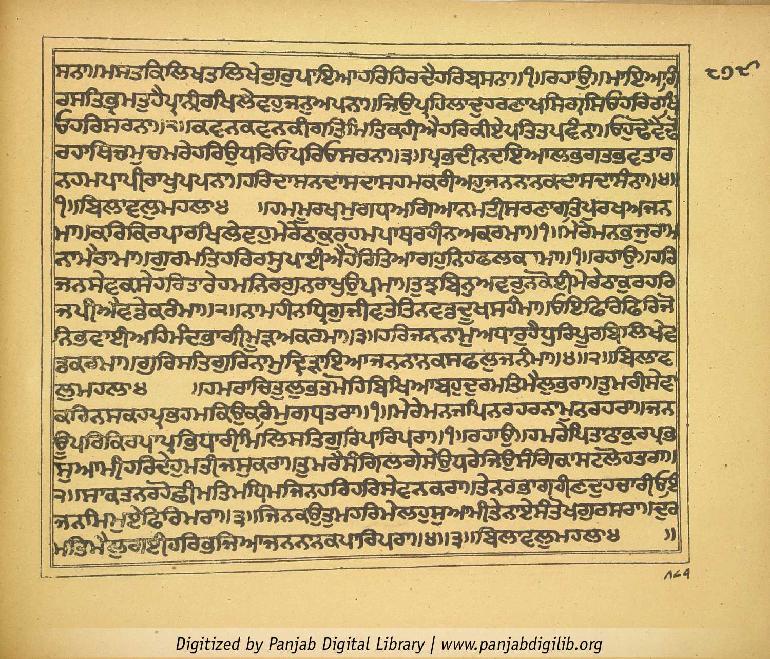 ਸਨਾ॥ਮਸਤਕਿਲਿਖਤੁਲਿਖੇਗੁਰੁਪਾਇਆਹਰਿਹਿਰਦੈਹਰਿਬਸਨਾ॥੧॥ਰਹਾਉ॥ਮਾਇਆਗਿ
ਰਸਤਿਭ੍ਰਮਤੁਹੈਪ੍ਰਾਨੀਰਖਿਲੇਵਹੁਜਨੁਅਪਨਾ॥ਜਿਉਪ੍ਰਹਿਲਾਦੁਹਰਣਾਖਸਿਗ੍ਰਸਿਓਹਰਿਰਾਖਿ
ਓਹਰਿਸਰਨਾ॥੨॥ਕਵਨਕਵਨਕੀਗਤਿਮਿਤਿਕਹੀਐਹਰਿਕੀਏਪਤਿਤਪਵੰਨਾ॥ਓਹੁਢੋਵੈਢੋ
ਰਹਾਥਿਚਮੁਚਮਰੇਹਰਿਉਧਰਿਓਪਰਿਓਸਰਨਾ॥੩॥ਪ੍ਰਭਦੀਨਦਇਆਲਭਗਤਭਵਤਾਰ
ਨਹਮਪਾਪੀਰਾਖੁਪਪਨਾ॥ਹਰਿਦਾਸਨਦਾਸਦਾਸਹਮਕਰੀਅਹੁਜਨਨਾਨਕਦਾਸਦਾਸੰਨਾ॥੪॥
੧॥ਬਿਲਾਵਲੁਮਹਲਾ੪ ॥ਹਮਮੂਰਖਮੁਗਧਅਗਿਆਨਮਤੀਸਰਣਾਗਤਿਪੁਰਖਅਜਨ
ਮਾ॥ਕਰਿਕਿਰਪਾਰਖਿਲੇਵਹੁਮੇਰੇਠਾਕੁਰਹਮਪਾਥਰਹੀਨਅਕਰਮਾ॥੧॥ਮੇਰੇਮਨਭਜੁਰਾਮ
ਨਾਮੈਰਾਮਾ॥ਗੁਰਮਤਿਹਰਿਰਸੁਪਾਈਐਹੋਰਿਤਿਆਗਹੁਨਿਹਫਲਕਾਮਾ॥੧॥ਰਹਾਉ॥ਹਰਿ
ਜਨਸੇਵਕਸੇਹਰਿਤਾਰੇਹਮਨਿਰਗੁਨਰਾਖੁਉਪਮਾ॥ਤੁਝਬਿਨੁਅਵਰੁਨਕੋਈਮੇਰੇਠਾਕੁਰਹਰਿ
ਜਪੀਐਵਡੇਕਰੰਮਾ॥੨॥ਨਾਮਹੀਨਧ੍ਰਿਗੁਜੀਵਤੇਤਿਨਵਡਦੂਖਸਹੰਮਾ॥ਓਇਫਿਰਿਫਿਰਿਜੋ
ਨਿਭਵਾਈਅਹਿਮੰਦਭਾਗੀਮੂੜਅਕਰਮਾ॥੩॥ਹਰਿਜਨਨਾਮੁਅਧਾਰੁਹੈਧੁਰਿਪੂਰਬਿਲਿਖੇਵ
ਡਕਰਮਾ॥ਗੁਰਿਸਤਿਗੁਰਿਨਾਮੁਦ੍ਰਿੜਾਇਆਜਨਨਾਨਕਸਫਲੁਜਨੰਮਾ॥੪॥੨॥ਬਿਲਾਵ
ਲੁਮਹਲਾ੪ ॥ਹਮਰਾਚਿਤੁਲੁਭਤਮੋਹਿਬਿਖਿਆਬਹੁਦੁਰਮਤਿਮੈਲੁਭਰਾ॥ਤੁਮਰੀਸੇਵਾ
ਕਰਿਨਸਕਹਪ੍ਰਭਹਮਕਿਉਕਰਿਮੁਗਧਤਰਾ॥੧॥ਮੇਰੇਮਨਜਪਿਨਰਹਰਨਾਮੁਨਰਹਰਾ॥ਜਨ
ਊਪਰਿਕਿਰਪਾਪ੍ਰਭਿਧਾਰੀਮਿਲਿਸਤਿਗੁਰਪਾਰਿਪਰਾ॥੧॥ਰਹਾਉ॥ਹਮਰੇਪਿਤਾਠਾਕੁਰਪ੍ਰਭ
ਸੁਆਮੀਹਰਿਦੇਹੁਮਤੀਜਸੁਕਰਾ॥ਤੁਮਰੈਸੰਗਿਲਗੇਸੇਉਧਰੇਜਿਉਸੰਗਿਕਾਸਟਲੋਹਤਰਾ॥
੨॥ਸਾਕਤਨਰਹੋਛੀਮਤਿਮਧਿਮਜਿਨਹਰਿਹਰਿਸੇਵਨਕਰਾ॥ਤੇਨਰਭਾਗਹੀਣਦੁਹਚਾਰੀਓਇ
ਜਨਮਿਮੁਏਫਿਰਿਮਰਾ॥੩॥ਜਿਨਕਉਤੁਮਹਰਿਮੇਲਹੁਸੁਆਮੀਤੇਨਾਏਸੰਤੋਖਗੁਰਸਰਾ॥ਦੁਰ
ਮਤਿਮੈਲੁਗਈਹਰਿਭਜਿਆਜਨਨਾਨਕਪਾਰਿਪਰਾ॥੪॥੩॥ਬਿਲਾਵਲੁਮਹਲਾ੪ ॥
Digitized by Panjab Digital Library | www.panjabdigilib.org